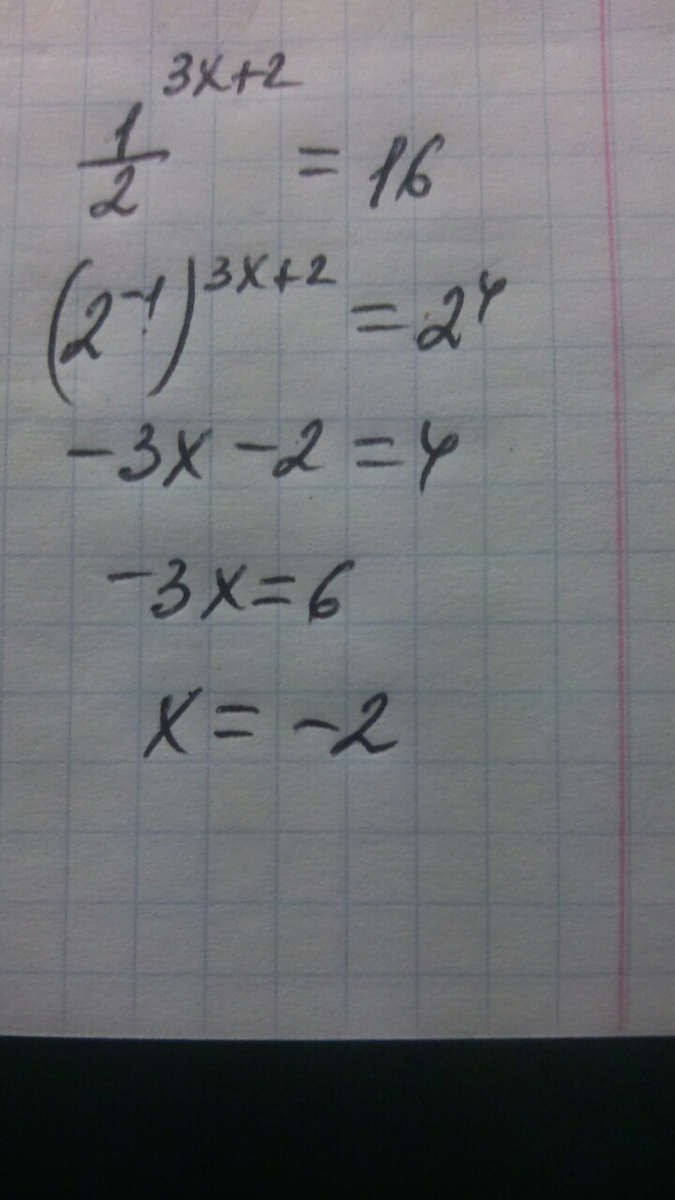 1/2^(3x+2) = 16
(2^-1)^(3x+2) = 2^4
-3x - 2 = 4
-3x = 6
x = -2